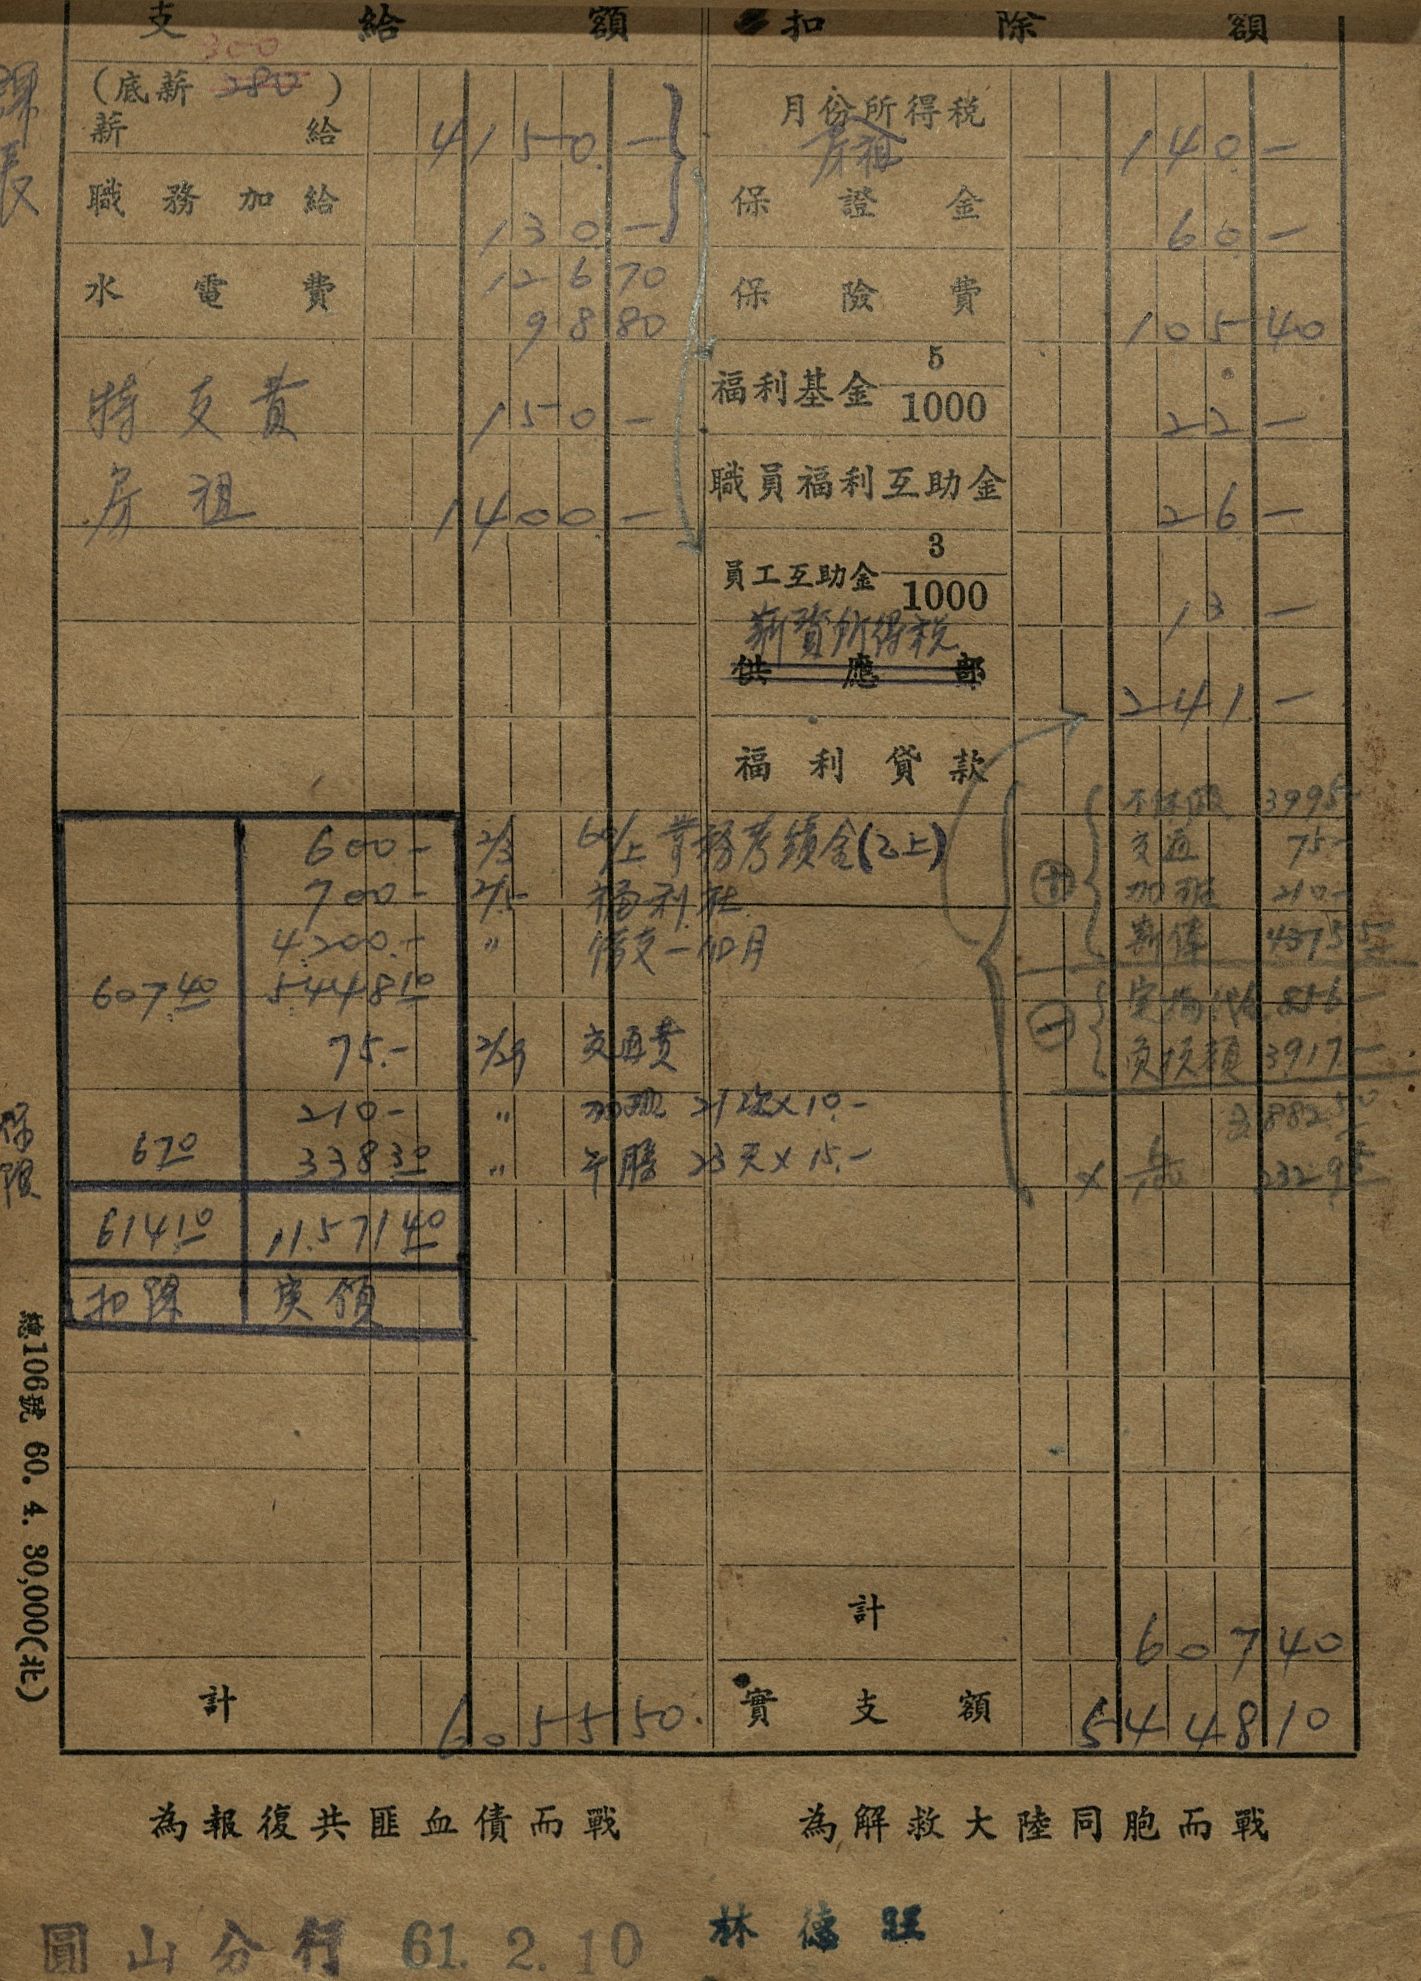 支給額 扣除額
300
(底薪 280)
薪給 4150.—
月份所得稅
房租 140.—
課長
職務加給 130.—
保證金 60.—
水電費 126 70
98 80
保險費 105 40
特支費 150.—
福利基金 5/1000 22.—
房租 1400.—
職員福利互助金 26.—
員工互助金 3/1000 13.—
薪資所得税
供應部 241.—
福利貸款
600.— 2/3 60/上 業務考績金(乙上)
700.— 2/5 福利社
4,200.— 〃 借支一個月
607.40 5,448.10
75.— 2/29 交通費
210.— 〃 加班 21次×10.—
6.70 338.30 〃 午膳 23天×15.—
614.10 11,571.40
扣除 實領
3995—
交通 75—
加班 210—
⊕
⊖
3917—
保險
計 607 40
計 6055 50.
實支額 5448 10
總106號 60. 4. 30,000(北)
為報復共匪血債而戰 為解救大陸同胞而戰
圓山分行 61. 2. 10 林德旺